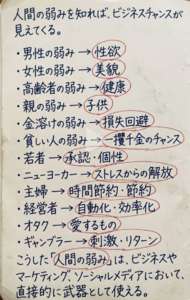 人間の弱みを知れば、ビジネスチャンスが
見えてくる。
・男性の弱み→性欲
・女性の弱み→美貌
・高齢者の弱み→健康
・親の弱み→子供
・金溶けの弱み→損失回避
・貧しい人の弱み→一攫千金のチャンス
・若者→承認・個性
・ニューヨーカー→ストレスからの解放
・主婦→時間節約・節約
・経営者→自動化・効率化
・オタク→愛するもの
・ギャンブラー→刺激・リターン
こうした「人間の弱み」は、ビジネスや
マーケティング、ソーシャルメディアにおいて、
直接的に武器として使える。